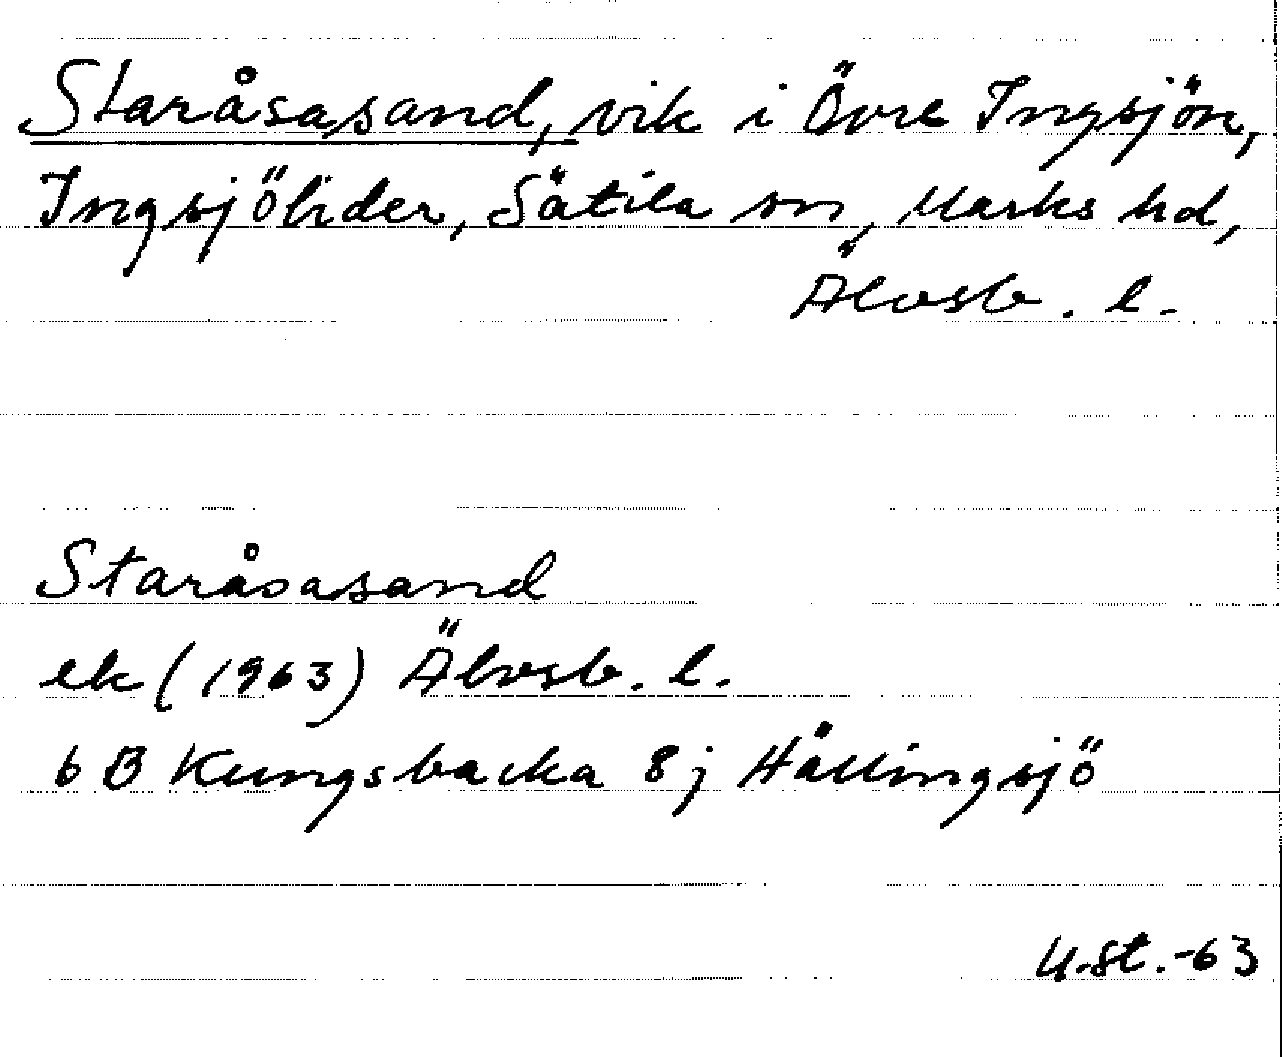 Staråsasand, vik i Övre Ingsjön,
Ingsjölider, Sätila sn, Marks hd,
Älvsb. l.
Staråsasand
ek (1963) Älvsb. l.
6 B Kungsbacka 8 j Hällingsjö
U.St.-63